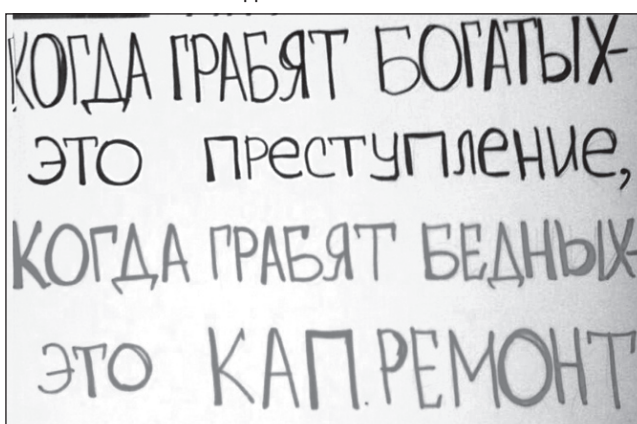 КОГДА ГРАБЯТ БОГАТЫХ-
ЭТО ПРЕСТУПЛЕНИЕ,
КОГДА ГРАБЯТ БЕДНЫХ-
ЭТО КАП.РЕМОНТ